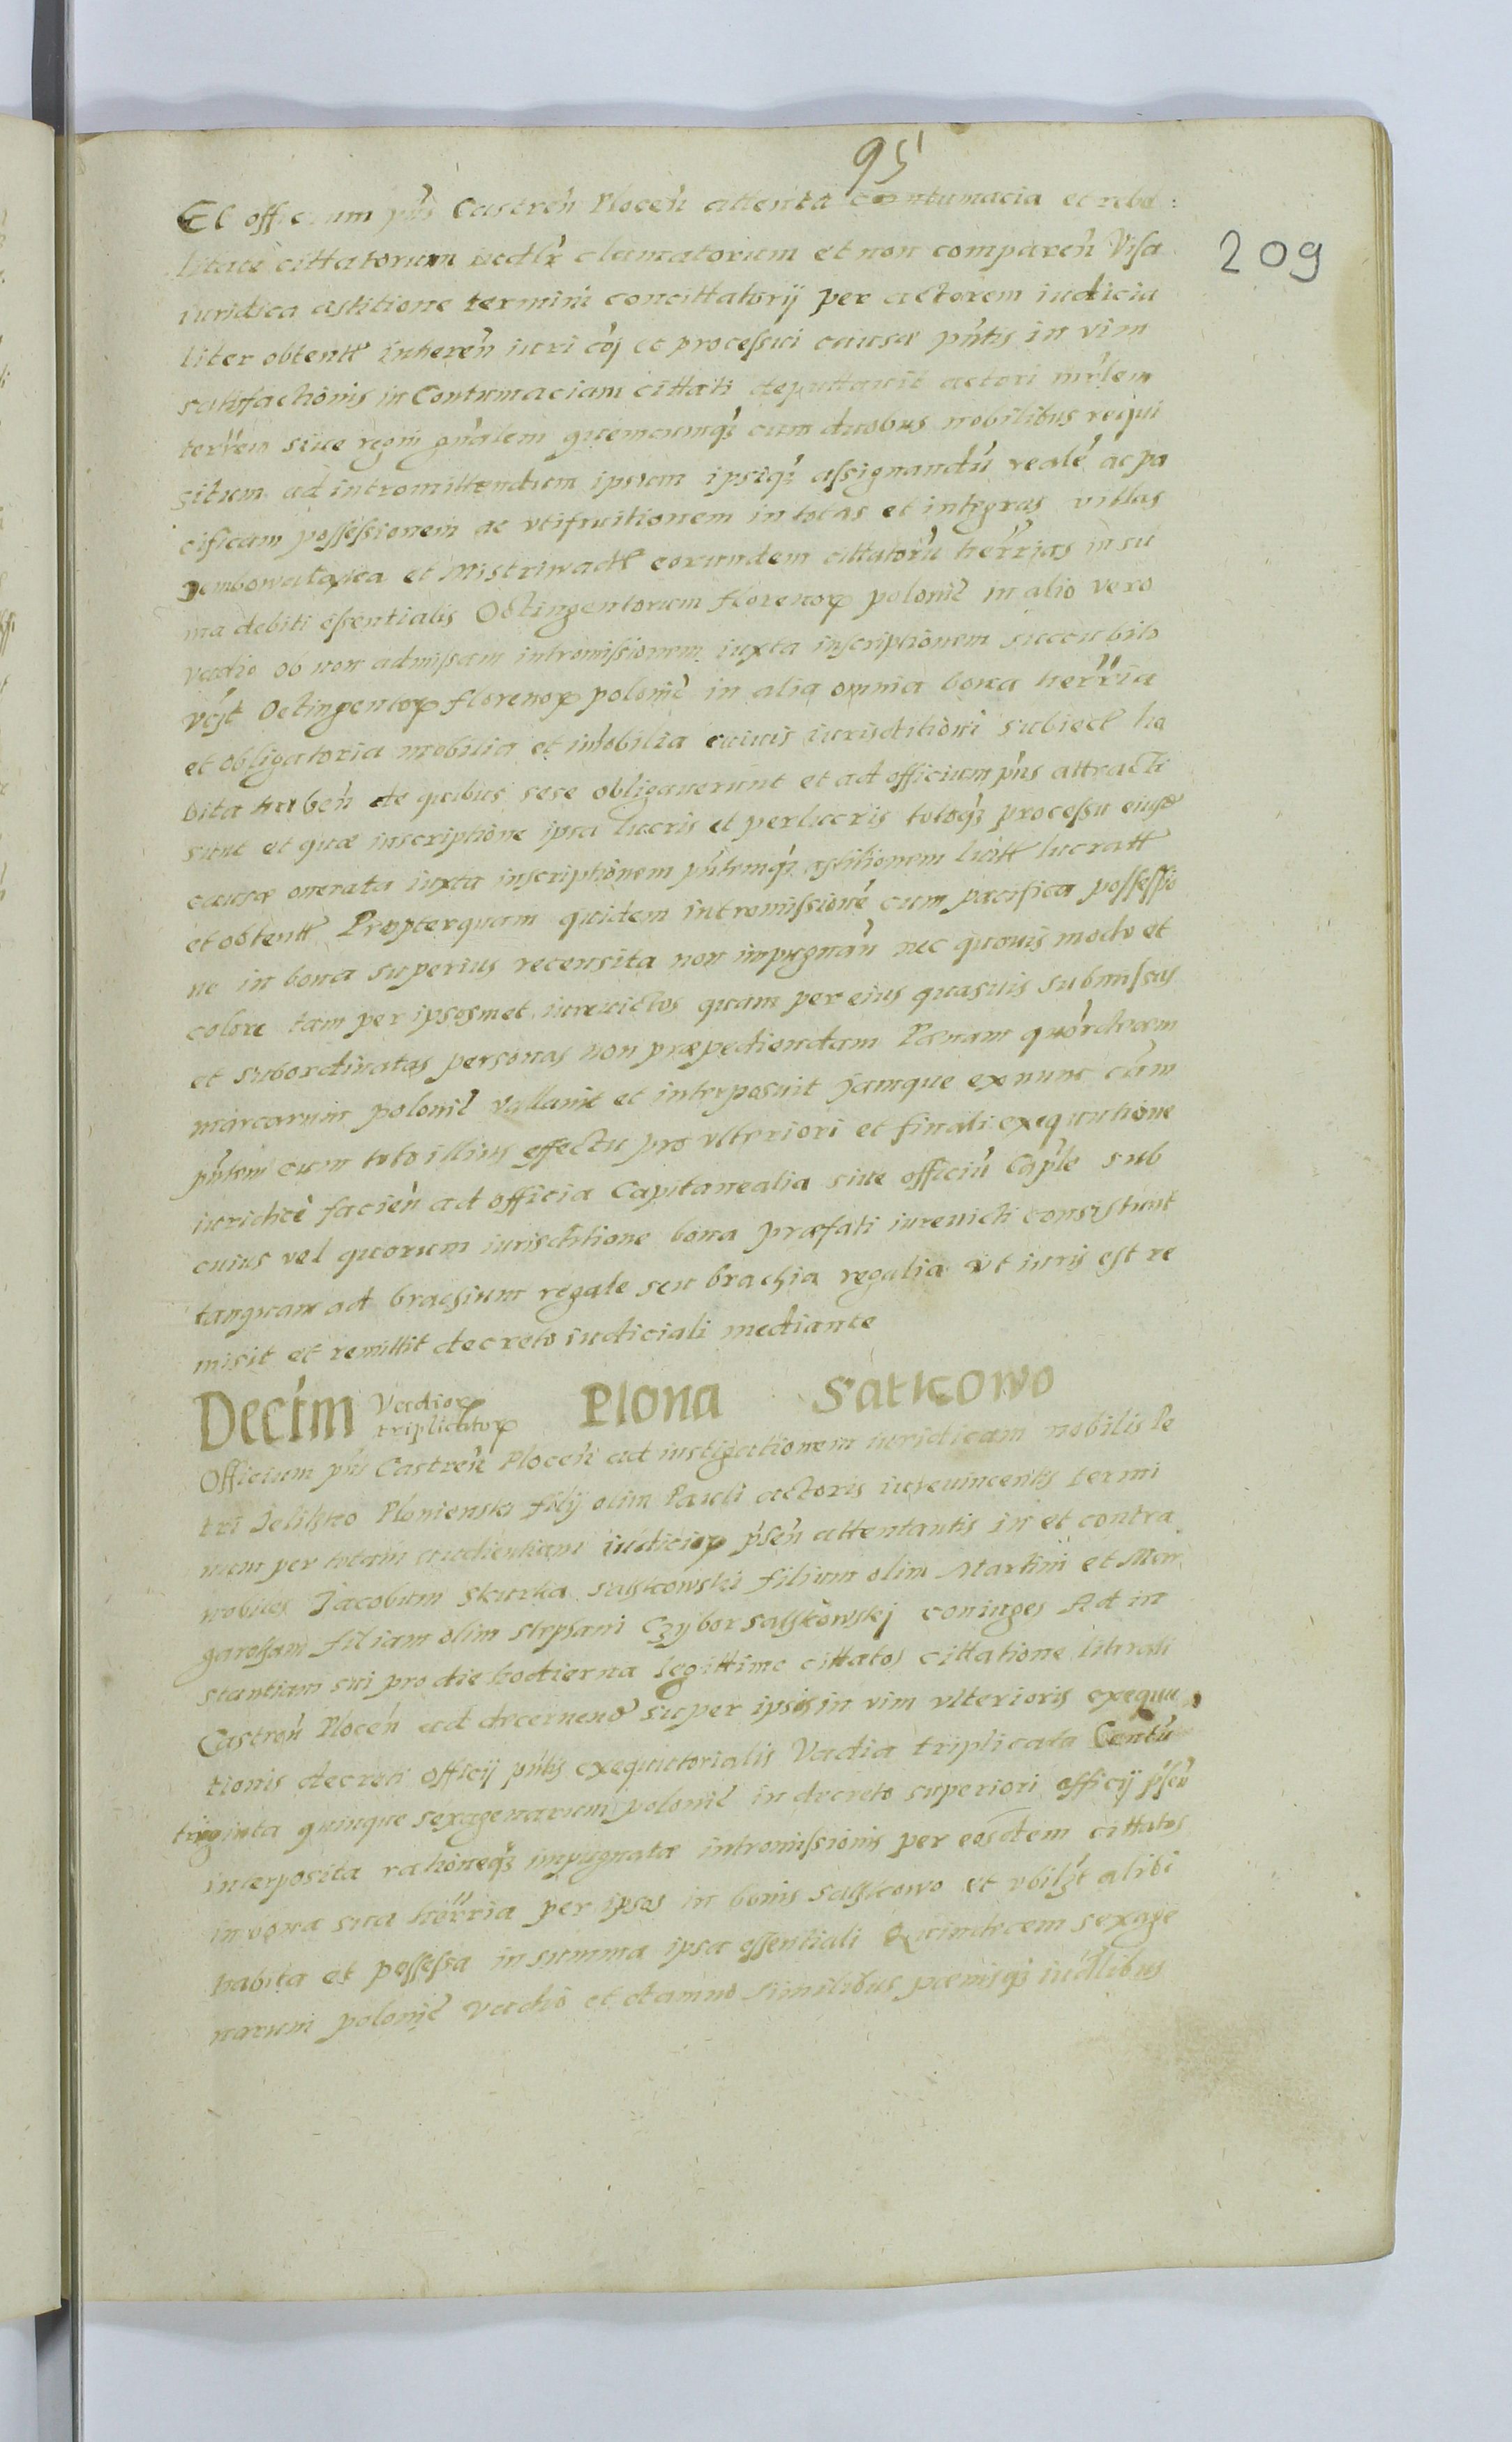 95
209
Et officium pñs Castreñ Ploceñ attenta contumacia et rebel:
litate cittatorum iudlr clamatorum et non compareñ Visa
iuridica astitione termini concittatorij per actorem iudicia
liter obtenti inhereñ iuri coi et processui causæ pñtis in vim
satisfactionis in Contumaciam cittati deputtavit actori mrlem
terrem sive regni gnalem quemcumq₃ cum duobus nobilibus requi
situm ad intromittendum ipsum ipsiq₃ assignandũ realẽ ac pa
cificam possessionem ac vtifruitionem in totas et integras villas
et eorundem cittatorũ herrias in su
ma debiti essentialis Octingentorum florenoꝝ polonil in alio vero
vadio ob non admissam intromissionem iuxta inscriptionem succubito
vest Octingentoꝝ florenoꝝ polonil in alia omnia bona herria
et obligatoria mobilia et imobilia cuiuis iurisditioni subiect ha
bita habeñ de quibus sese obligaverunt et ad officium pñs attracti
sunt et quæ inscriptione ipsa lucris et perlucris totoq₃ processu eiusd
causæ onerata iuxta inscriptionem pñtemq₃ astitionem lucratt
et obtentt Præterquam quidem intromissionẽ cum pacifica possessio
ne in bona superius recensita non impugnañ nec quovis modo et
colore tam per ipsosmet iurevictos quam per eius quasuis submissas
et subordinatas personas non præpediendam Pænam quordecem
marcarum polonil vallavit et interposuit jamque ex nunc cam
pñtem cum toto illius effectu pro vlteriori et finali exequutione
iuridicè facieñ ad officia Capitanealia siue officiũ Caple sub
cuius vel quorum iurisditione bona præfati iurevicti consistunt
tanquam ad brachium regale seu brachia regalia vt iuris est re
misit et remittit decreto iudiciali mediante
Decim Vadioꝝ triplicatoꝝ Plona Satkowo
Officium pñs Castreñ Ploceñ ad instigationem iuridicam nobilis Pe
tri Plonienski filij olim Pauli actoris iurevincentis termi
num per totam audientiam iudicioꝝ pseñ attentantis in et contra
nobiles Jacobum Skurka filium olim Martini et Mar
filiam olim Stephani Czybor coniuges Ad in
stantiam sui pro die hodierna legittime cittatos cittatione literali
Castreñ Ploceñ ad decernend super ipsis in vim vlterioris exequu
tionis decreti officij pñtis exequutorialis Vadia triplicata Centũ
triginta quinque sexagenarum polonil in decreto superiori officij pseñ
interposita rationeq₃ impugnatæ intromissionis per eosdem cittatos
in bona sua herria per ipsos in bonis et vbilzt alibi
habita et possessa in summa ipsa essentiali Quindecem sexage
narum polonil vadio et damno similibus pœnisq₃ iudlibus